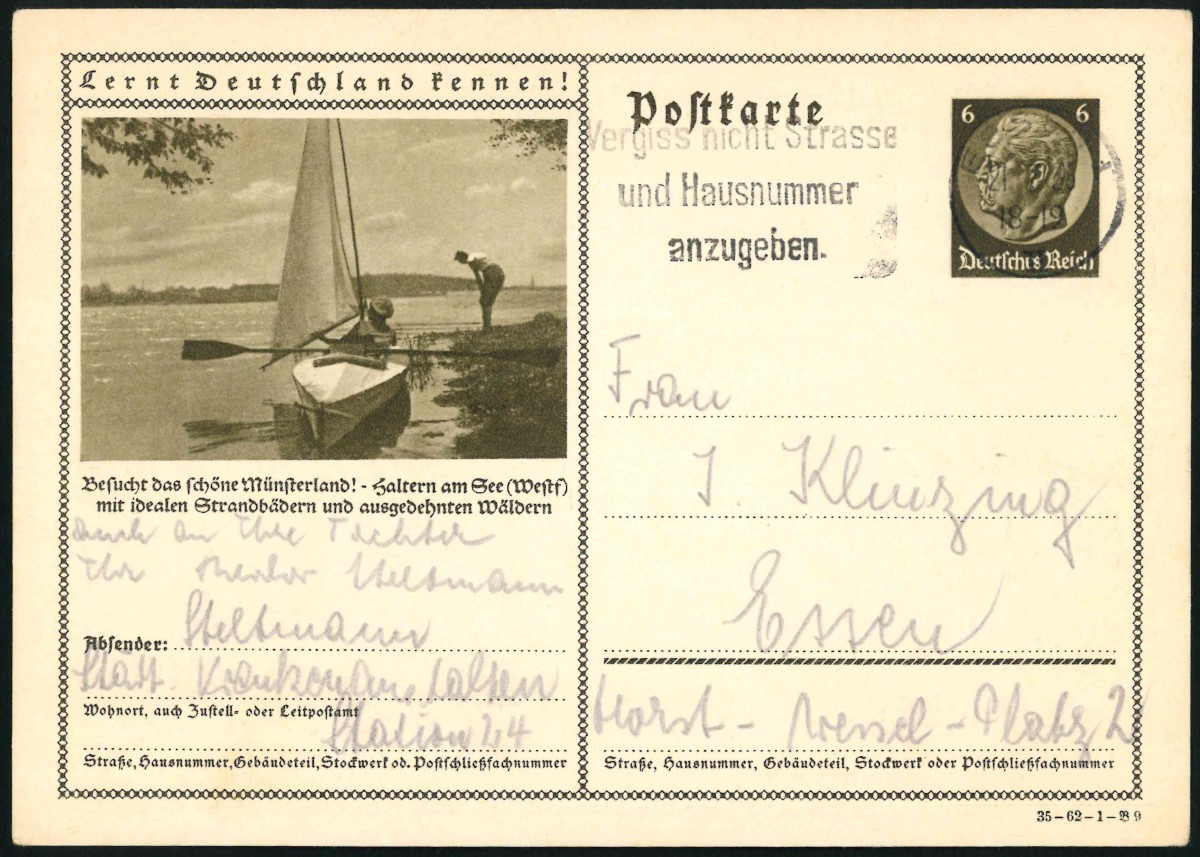 Lernt Deutschland kennen!
Besucht das schöne Münsterland! - Haltern am See (Westf)
mit idealen Strandbädern und ausgedehnten Wäldern
auch an Ihre Tochter
Ihr Steltmann
Absender: Steltmann
Städt. Krankenanstalten
Wohnort, auch Zustell- oder Leitpostamt
Station 24
Straße, Hausnummer, Gebäudeteil, Stockwerk od. Postschließfachnummer
Postkarte
Vergiss nicht Strasse
und Hausnummer
anzugeben.
6 6
21
18-19
Deutsches Reich
Frau
J. Klinzing
Essen
Horst-Wessel-Platz 2
Straße, Hausnummer, Gebäudeteil, Stockwerk oder Postschließfachnummer
35-62-1-B 9